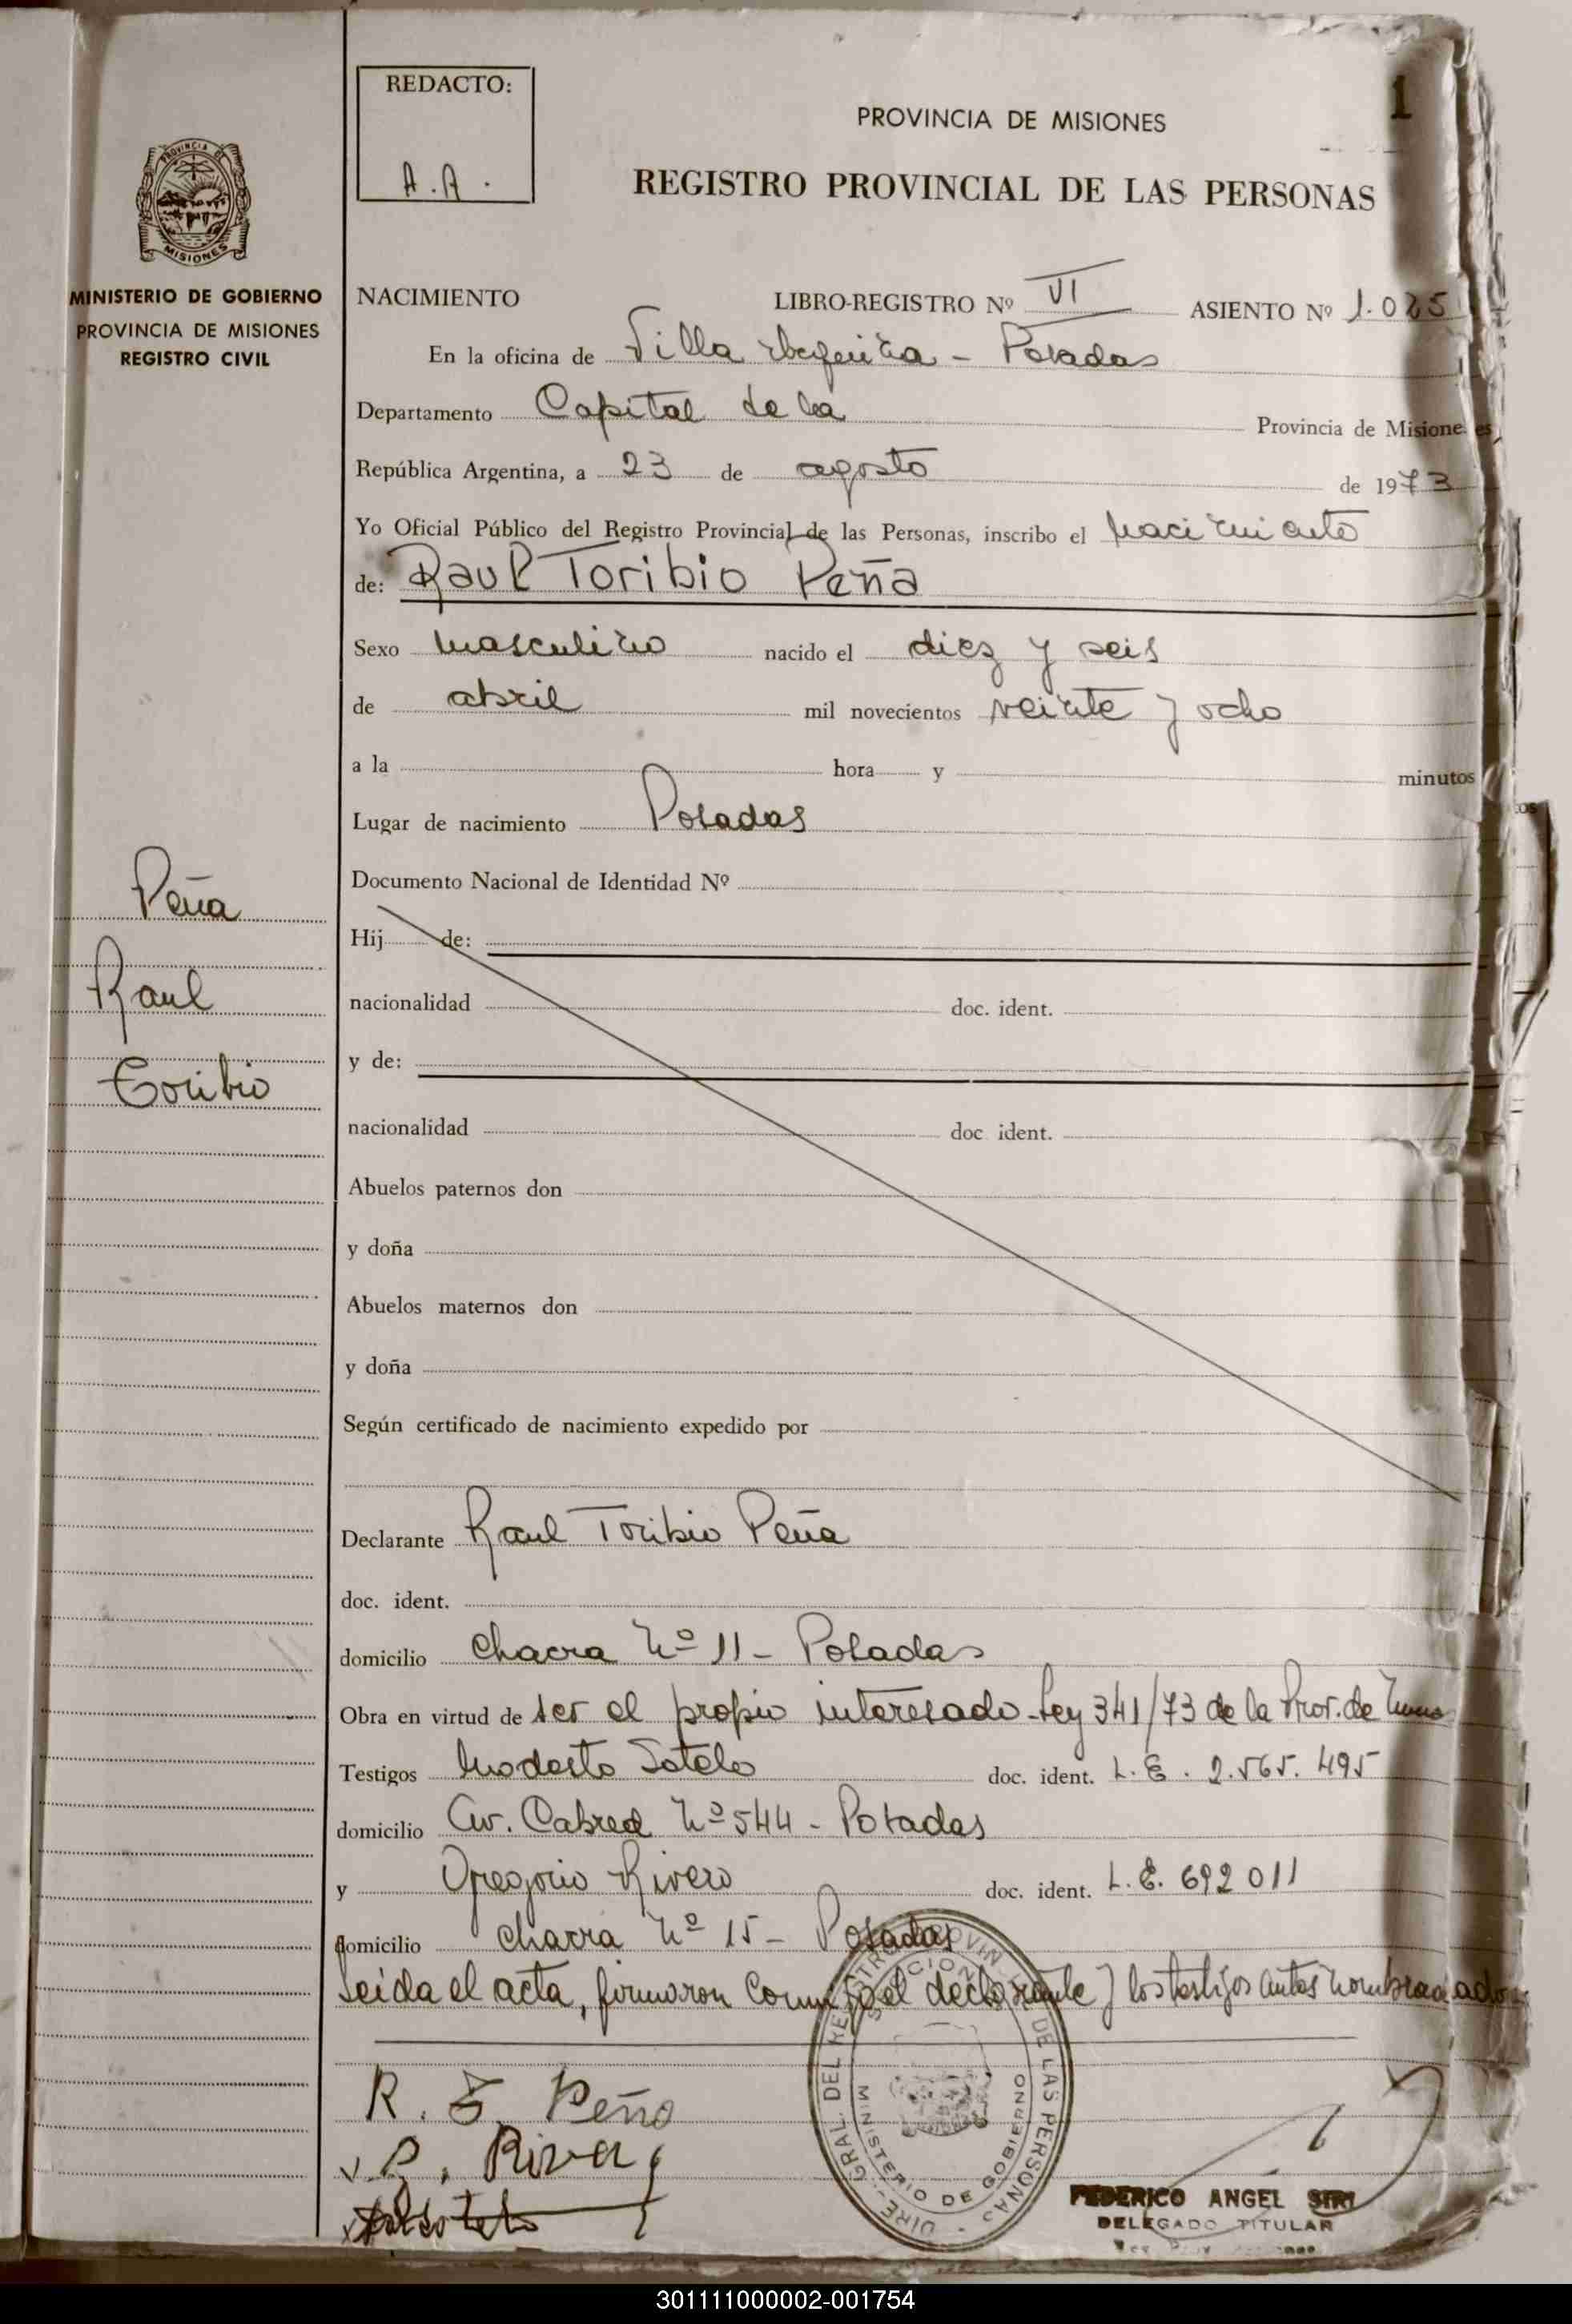 REDACTO:
A.A.
1
PROVINCIA DE MISIONES
REGISTRO PROVINCIAL DE LAS PERSONAS
PROVINCIA DE
MISIONES
MINISTERIO DE GOBIERNO
PROVINCIA DE MISIONES
REGISTRO CIVIL
NACIMIENTO LIBRO-REGISTRO Nº VI ASIENTO Nº 1.025
En la oficina de Villa - Posadas
Departamento Capital de la Provincia de Misiones
República Argentina, a 23 de agosto de 1973
Yo Oficial Público del Registro Provincial de las Personas, inscribo el nacimiento
de: Raul Toribio Peña
Sexo masculino nacido el diez y seis
de abril mil novecientos veinte y ocho
a la hora y minutos
Lugar de nacimiento Posadas
Documento Nacional de Identidad Nº
Peña
Raul
Toribio
Hij de:
nacionalidad doc. ident.
y de:
nacionalidad doc ident.
Abuelos paternos don
y doña
Abuelos maternos don
y doña
Según certificado de nacimiento expedido por
Declarante Raul Toribio Peña
doc. ident.
domicilio Chacra Nº 11 - Posadas
Obra en virtud de ser el propio interesado - Ley 341/73 de la Prov. de
Testigos Modesto Sotelo doc. ident. L.E. 2.565.495
domicilio Av. Cabred Nº 544 - Posadas
y Gregorio Rivero doc. ident. L.E. 692011
domicilio chacra Nº 15 - Posadas
Leida el acta, firmaron conmigo el declarante y los testigos antes nombrados
R. T. Peña
DIRE. GRAL. DEL REGISTRO PROVIN DE LAS PERSONAS
MINISTERIO DE GOBIERNO
FEDERICO ANGEL SIRI
DELEGADO TITULAR
301111000002-001754